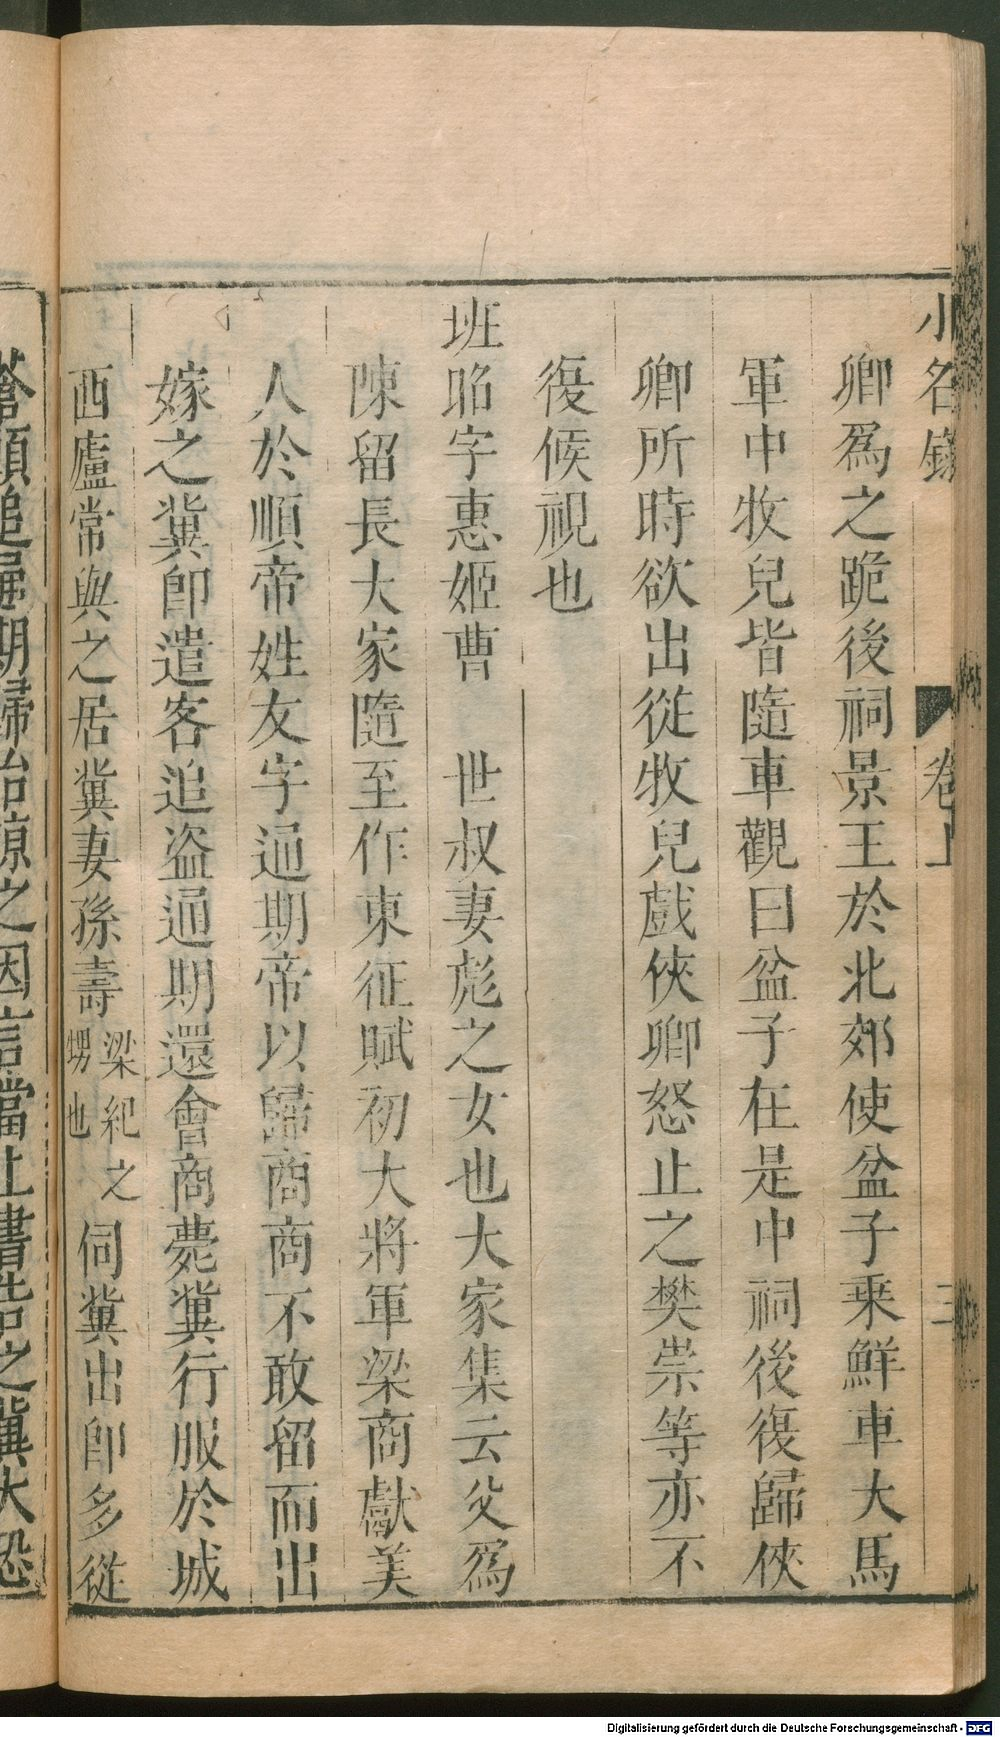 小名錄 卷上 三
卿爲之跪後祠景王於北郊使盆子乗鮮車大馬
軍中牧兒皆隨車觀曰盆子在是中祠後復歸俠
卿所時欲出從牧兒戲俠卿怒止之樊崇等亦不
復候視也
班昭字惠姬曹 世叔妻彪之女也大家集云父爲
陳留長大家隨至作東征賦初大將軍梁商獻美
人於順帝姓友字通期帝以歸商商不敢留而出
嫁之冀卽遣客追盗通期還會商薨冀行服於城
西廬常與之居冀妻孫壽梁紀之甥也伺冀出卽多從
蒼頭追歸期歸治掠之因言當上書告之冀大恐
Digitalisierung gefördert durch die Deutsche Forschungsgemeinschaft - DFG